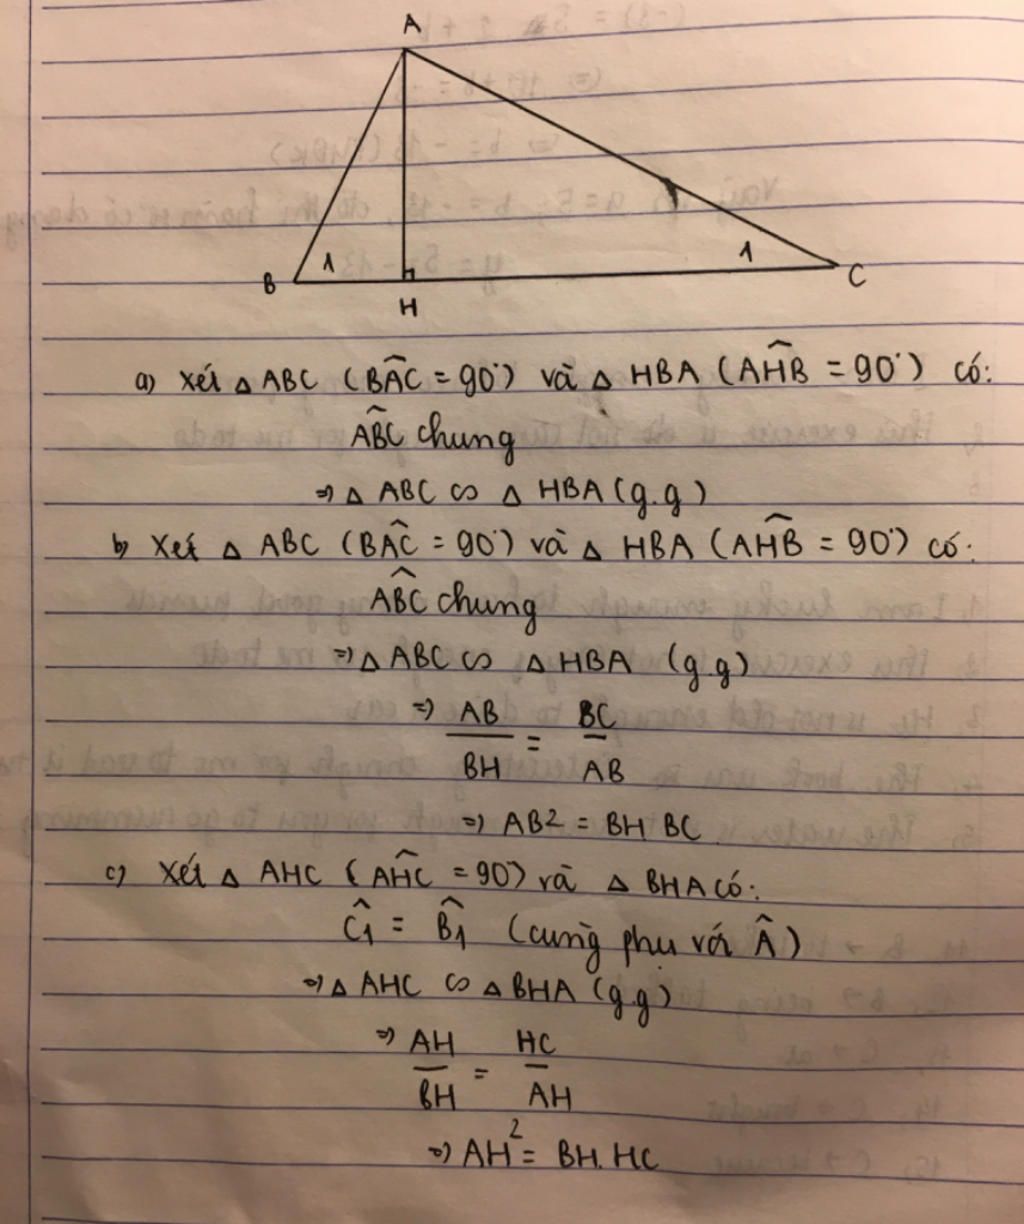 A
1
1
B
C
H
a) Xét △ ABC ( BÂC = 90°) và △ HBA ( AĤB = 90°) có:
AB̂C chung
=> △ ABC ∽ △ HBA (g.g)
b) Xét △ ABC ( BÂC = 90°) và △ HBA ( AĤB = 90°) có:
AB̂C chung
=> △ ABC ∽ △ HBA (g.g)
=> AB/BH = BC/AB
=> AB² = BH.BC
c) Xét △ AHC ( AĤC = 90°) và △ BHA có:
Ĉ1 = B̂1 (cùng phụ với Â)
=> △ AHC ∽ △ BHA (g.g)
=> AH/BH = HC/AH
=> AH² = BH.HC